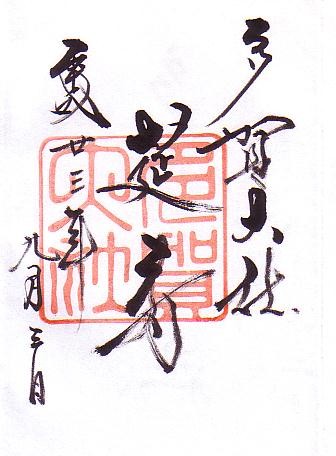 多賀大社
莚寿
平成廿三年九月三日
多賀
大社